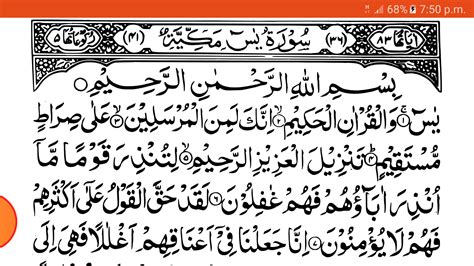 68% 7:50 p.m.
اٰیاتھا ۸۳ (۳۶) سُوْرَۃُ یٰسٓ مَکِّیَّۃٌ (۴۱) رکوعاتھا ۵
بِسْمِ اللّٰهِ الرَّحْمٰنِ الرَّحِیْمِ
یٰسٓ ۱ وَالْقُرْاٰنِ الْحَكِیْمِ ۲ اِنَّكَ لَمِنَ الْمُرْسَلِیْنَ ۳ عَلٰی صِرَاطٍ
مُّسْتَقِیْمٍ ۴ تَنْزِیْلَ الْعَزِیْزِ الرَّحِیْمِ ۵ لِتُنْذِرَ قَوْمًا مَّاۤ
اُنْذِرَ اٰبَآؤُهُمْ فَهُمْ غٰفِلُوْنَ ۶ لَقَدْ حَقَّ الْقَوْلُ عَلٰۤی اَكْثَرِهِمْ
فَهُمْ لَا یُؤْمِنُوْنَ ۷ اِنَّا جَعَلْنَا فِیْۤ اَعْنَاقِهِمْ اَغْلٰلًا فَهِیَ اِلَی